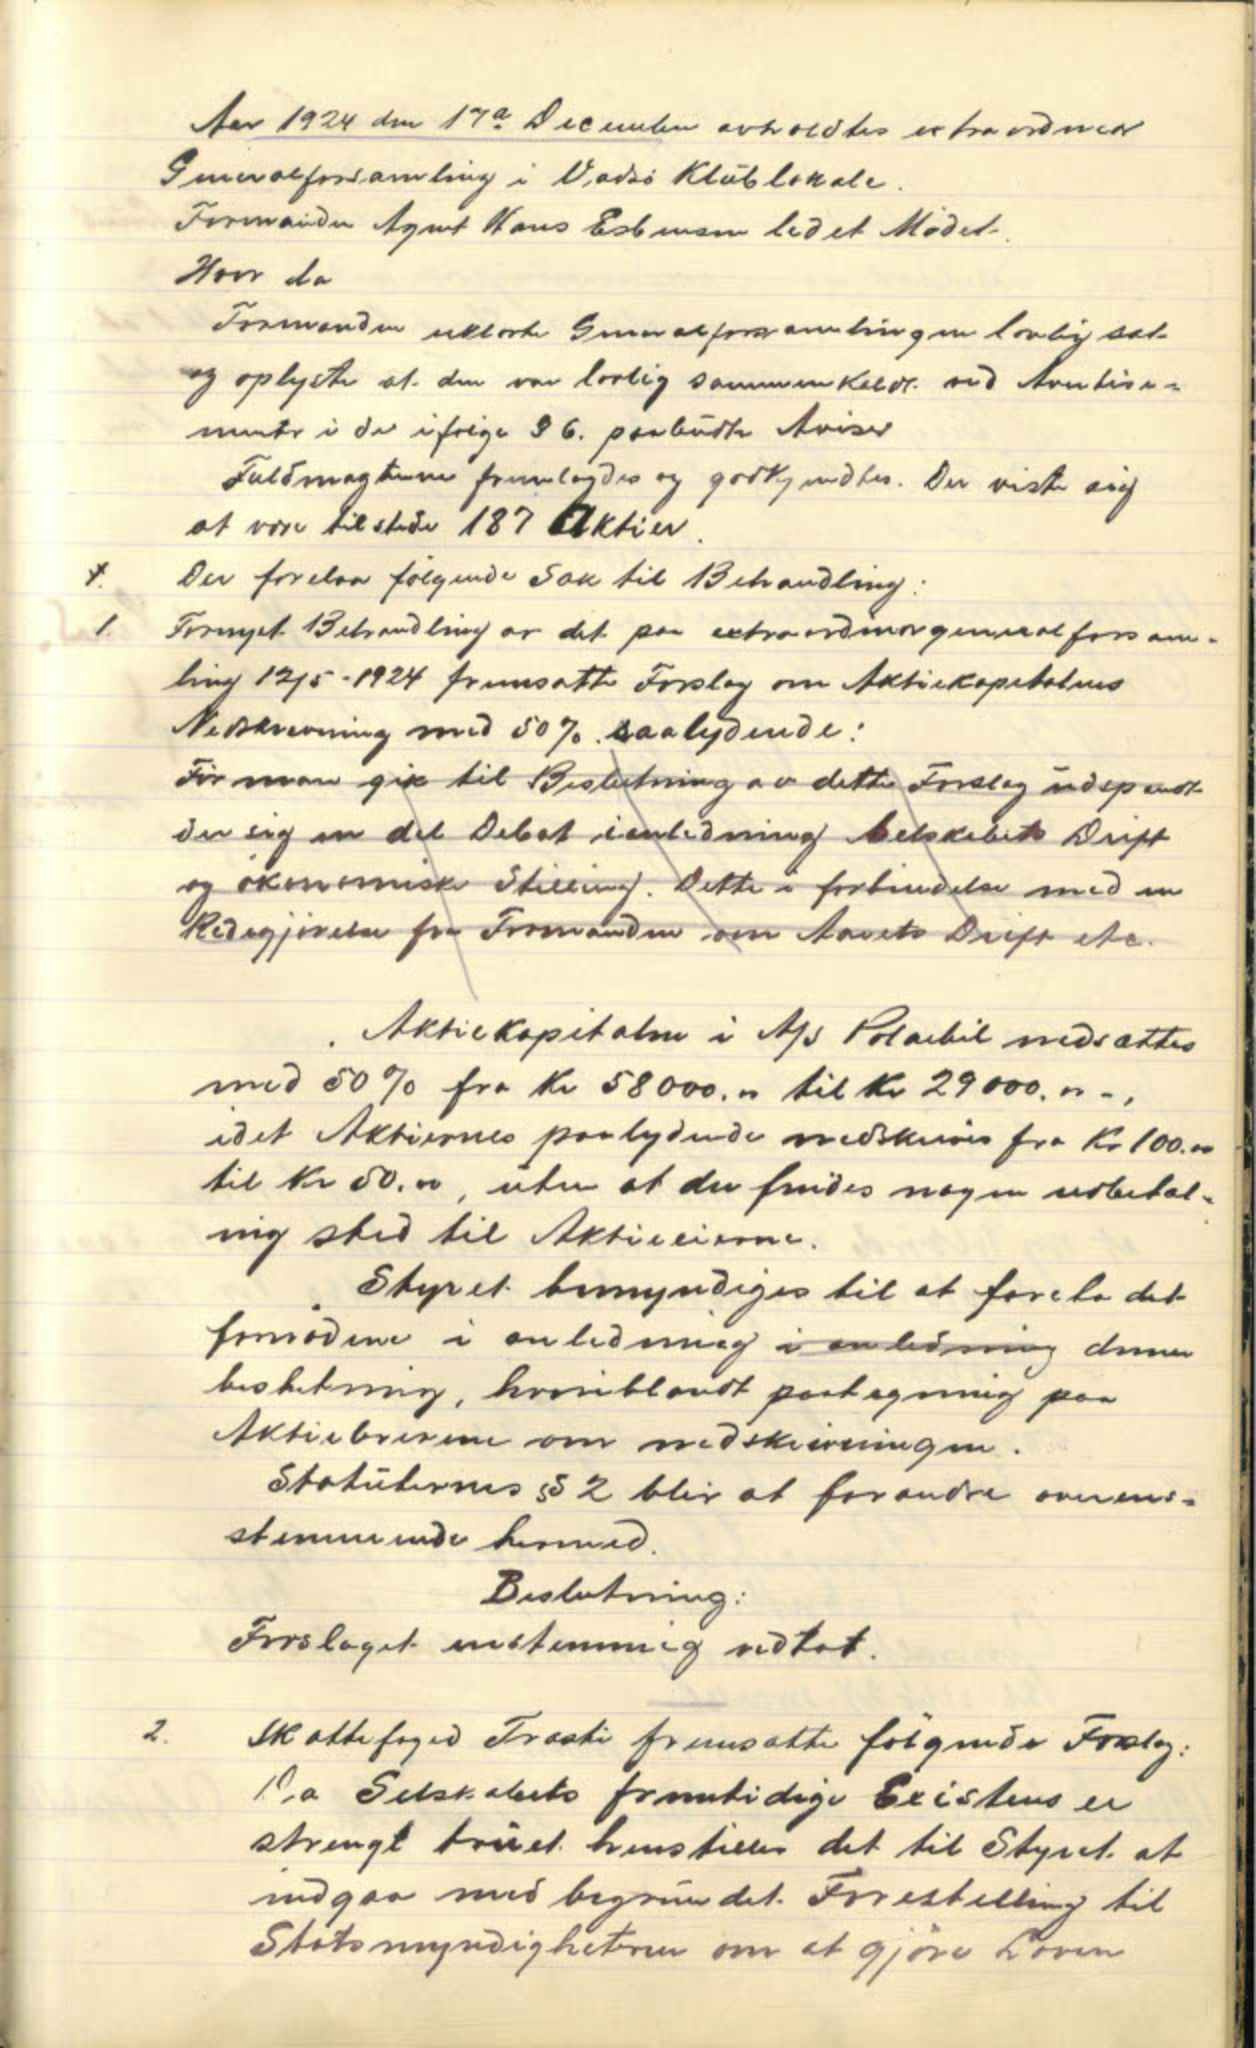 Aar 1924 den 17de December avholdtes extraordinær
Generalforsamling i Vadsö Klüblokale.
Formanden Agent Hans Esbensen ledet Mödet.
Hvor da
Formanden erklærte Generalforsamlingen lovlig sat
og oplyste at den var lovlig sammenkaldt ved Avertise-
menter i de ifölge § 6. paabüdte Aviser
Fuldmagterne fremlagdes og godkjendtes. Der viste sig
at være tilstede 187 Aktier.
Der forelaa fölgende Sak til Behandling:
1. Fornyet Behandling av det paa extraordinærgeneralforsam-
ling 12/5-1924 fremsatte Forslag om Aktiekapitalens
Nedskrivning med 50%. saalydende:
För man gik til Beslutning av dette Forslag üdspandt
der sig en del Debat i anledning Selskabets Drift
og ökonomiske Stilling. Dette i forbindelse med en
Redegjörelse fra Formanden om Aarets Drift etc.
Aktiekapitalen i A/S Polarbil nedsættes
med 50% fra Kr 58000.00 til Kr 29000.00 -,
idet Aktiernes paalydende nedskrives fra Kr 100.00
til Kr 50.00, üten at der findes nogen utbetal-
ing sted til Aktieeierne.
Styret bemyndiges til at foreta det
fornödne i anledning i anledning denne
beslutning, hvoriblandt paategning paa
Aktiebrevene om nedskrivningen.
Statüternes § 2 blir at forandre overens-
stemmende hermed.
Beslutning:
Forslaget enstemmig vedtat.
2. Skattefoged Trasti fremsatte fölgende Forslag:
Da Selskabets fremtidige Existens er
strengt trüet henstilles det til Styret at
indgaa med begründet Forestilling til
Statsmyndigheterne om at gjöre Loven